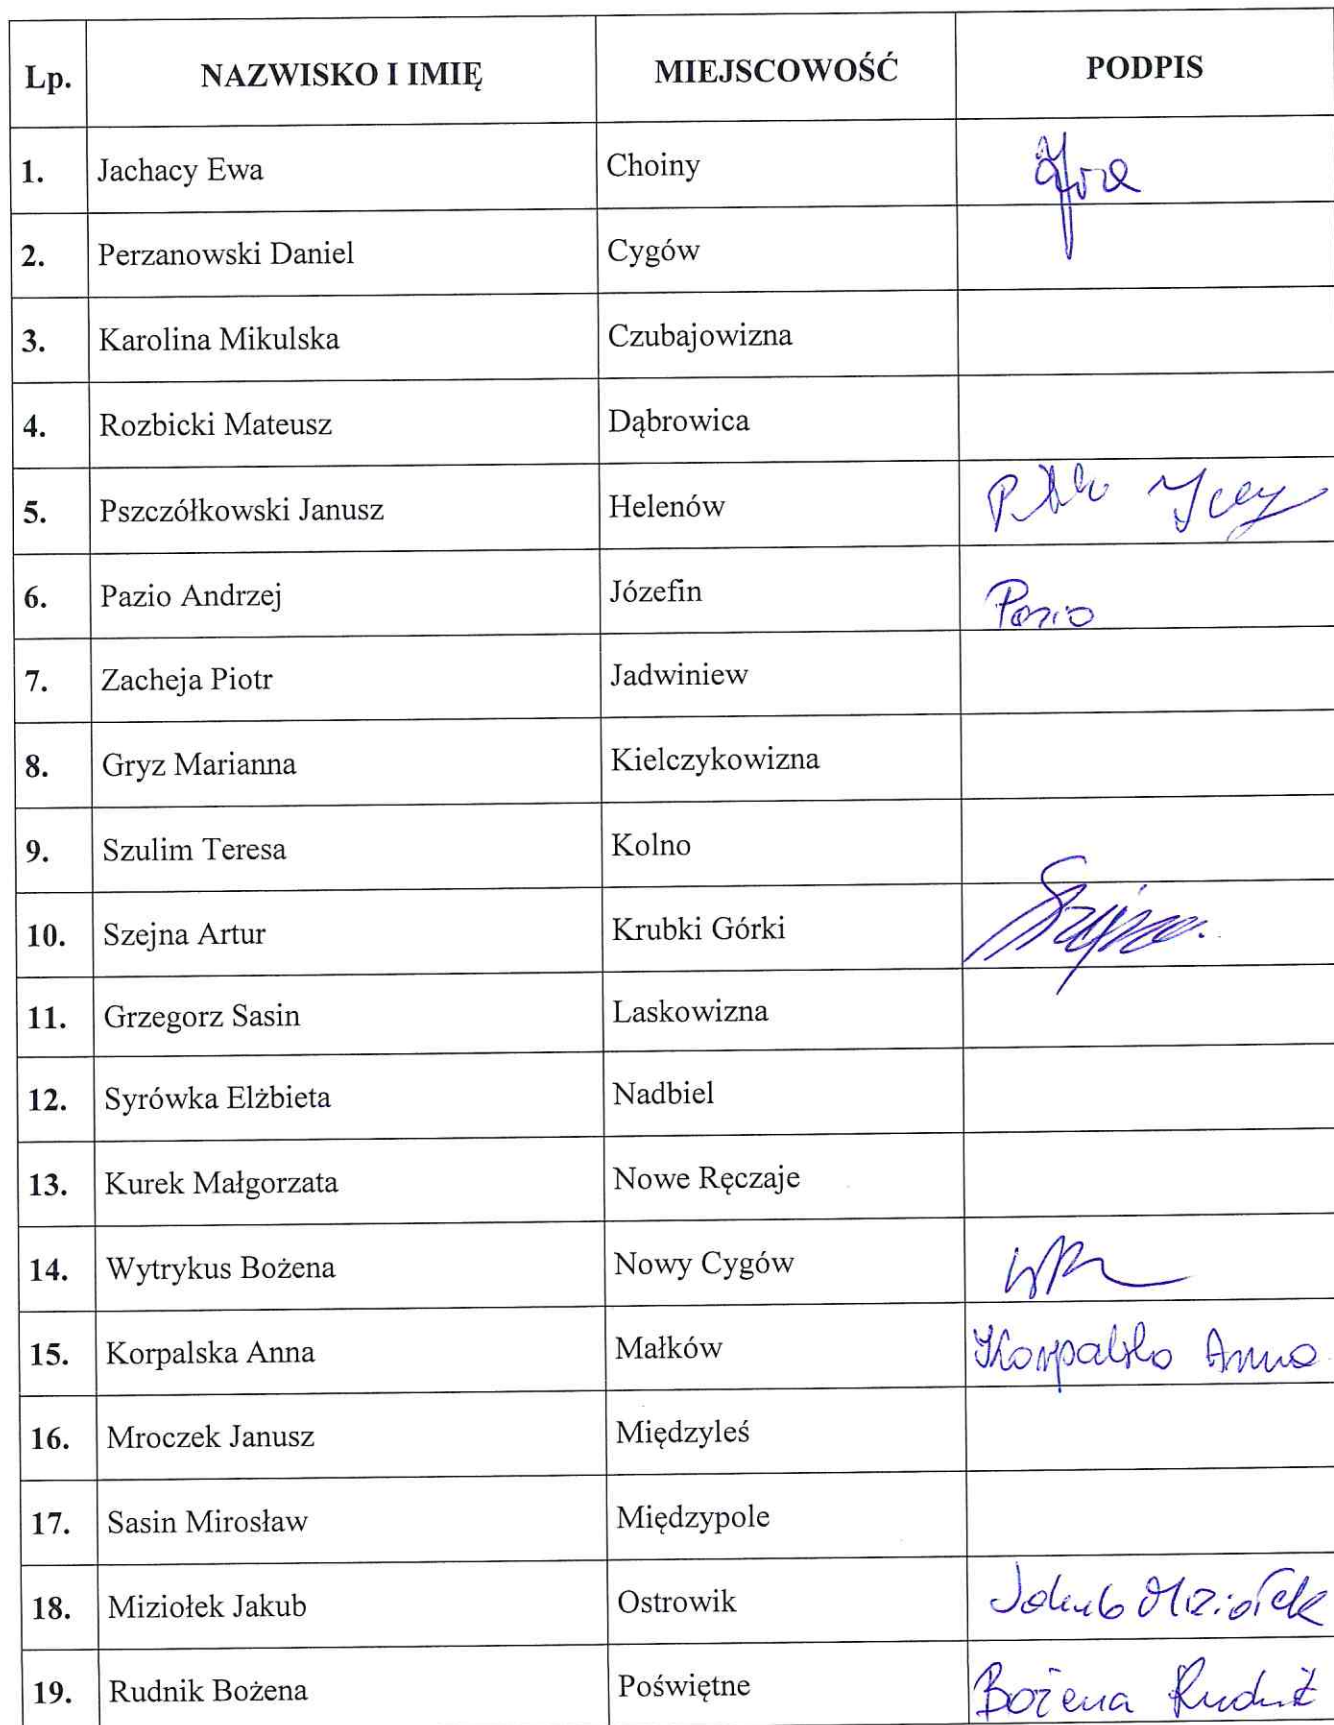 Lp. NAZWISKO I IMIĘ MIEJSCOWOŚĆ PODPIS
1. Jachacy Ewa Choiny
2. Perzanowski Daniel Cygów
3. Karolina Mikulska Czubajowizna
4. Rozbicki Mateusz Dąbrowica
5. Pszczółkowski Janusz Helenów
6. Pazio Andrzej Józefin Pazio
7. Zacheja Piotr Jadwiniew
8. Gryz Marianna Kielczykowizna
9. Szulim Teresa Kolno
10. Szejna Artur Krubki Górki
11. Grzegorz Sasin Laskowizna
12. Syrówka Elżbieta Nadbiel
13. Kurek Małgorzata Nowe Ręczaje
14. Wytrykus Bożena Nowy Cygów
15. Korpalska Anna Małków Korpalska Anna
16. Mroczek Janusz Międzyleś
17. Sasin Mirosław Międzypole
18. Miziołek Jakub Ostrowik Jakub Miziołek
19. Rudnik Bożena Poświętne Bożena Rudnik